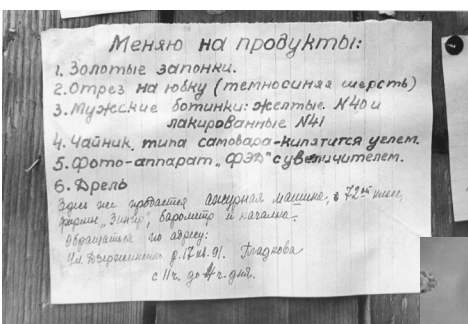 Меняю на продукты:
1. Золотые запонки.
2. Отрез на юбку (темносиняя шерсть)
3. Мужские ботинки: желтые №40 и
лакированные №41
4. Чайник типа самовара-кипятится углем.
5. Фото-аппарат „ФЭД" с увеличителем.
6. Дрель
Здесь же продается ажурная машина, 72ой класс,
барометр и качалка.
Обращаться по адресу:
Ул. Дзержинского д. 17 кв. 91.
с 11 ч. до 4 ч. дня.